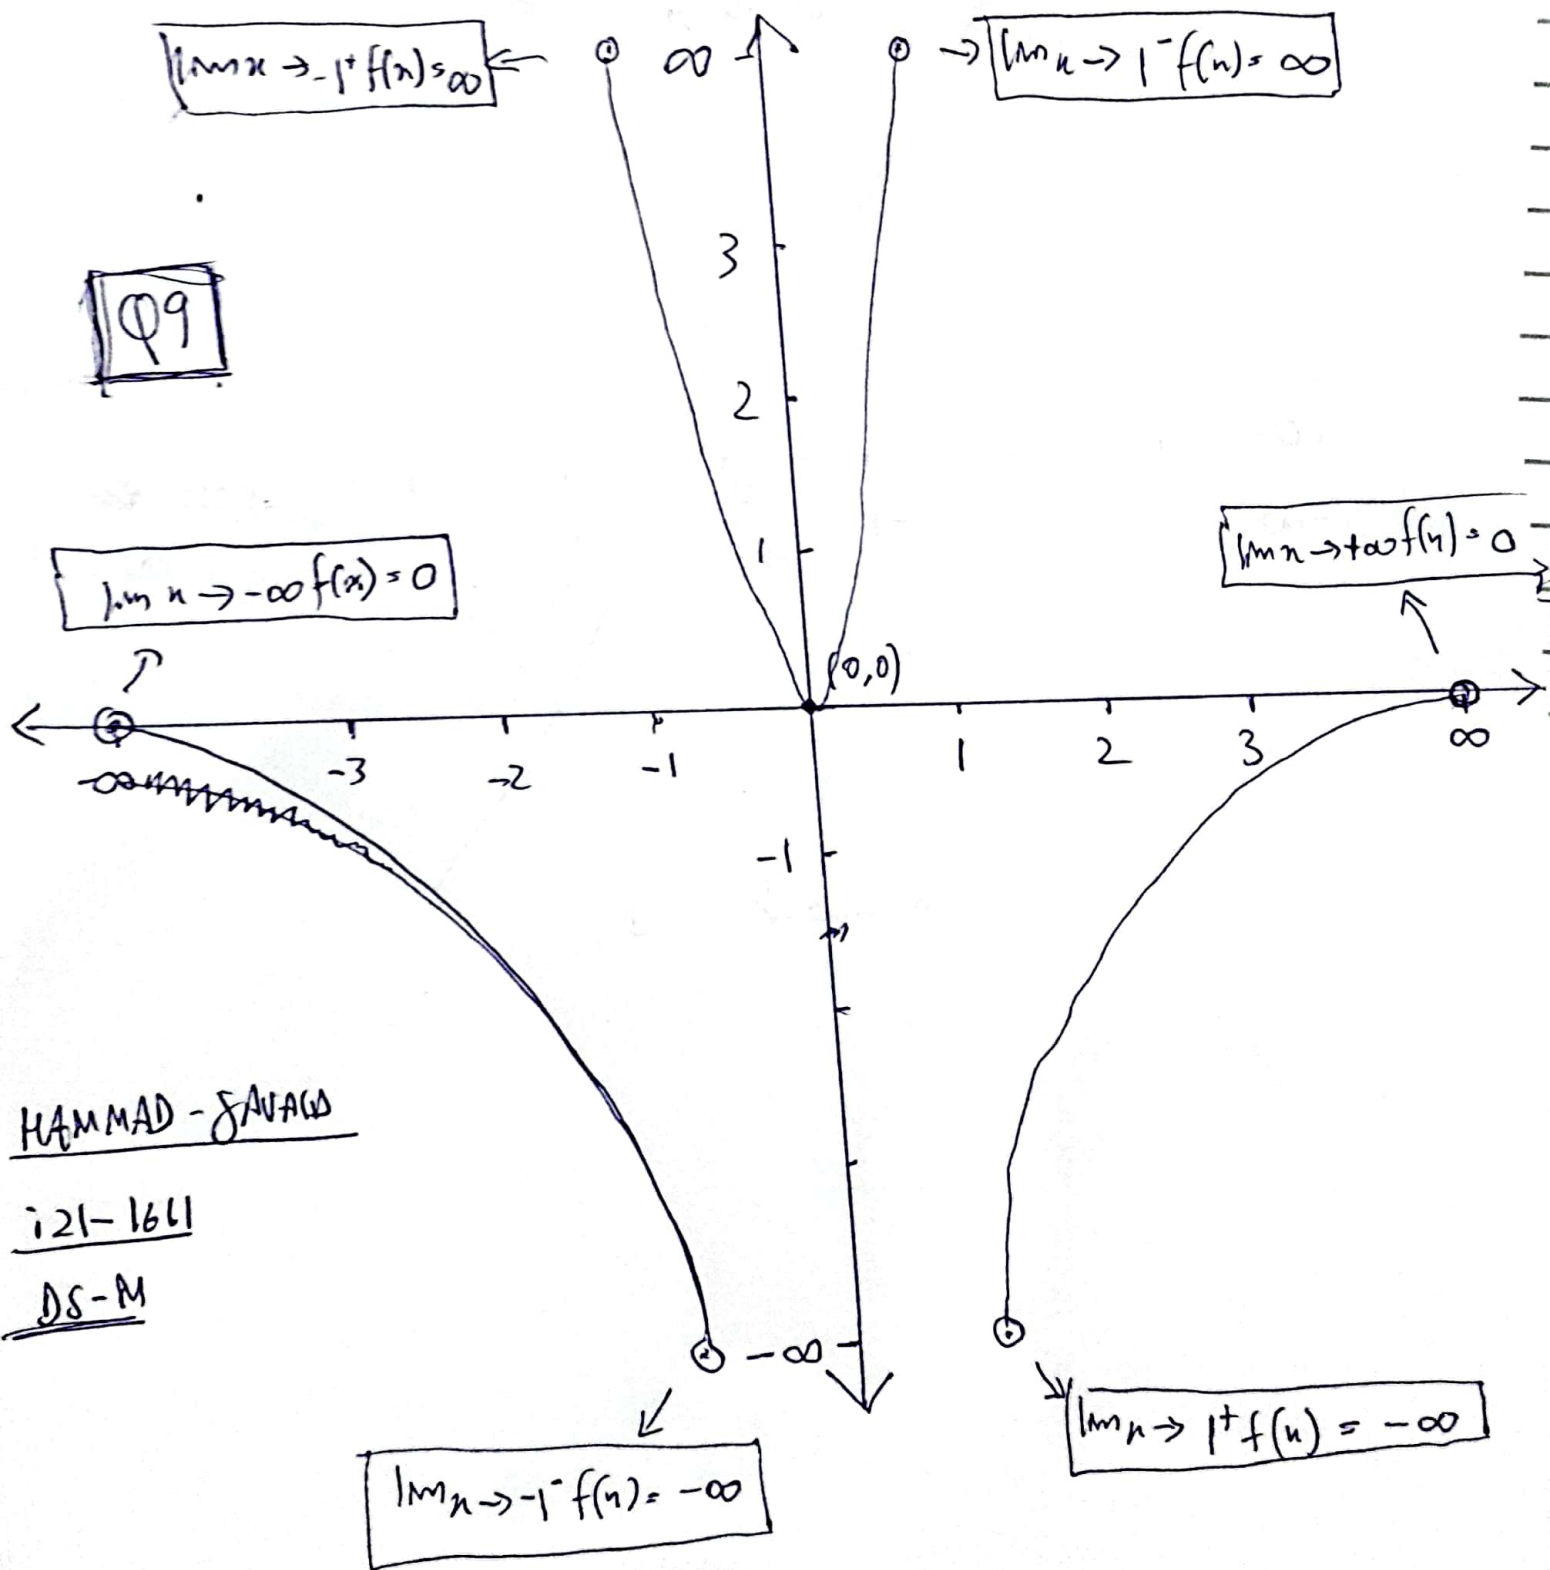 lim x → -1⁺ f(x) = ∞
∞
lim x → 1⁻ f(x) = ∞
3
Q9
2
1
lim x → +∞ f(x) = 0
lim x → -∞ f(x) = 0
(0,0)
-∞ -3 -2 -1 1 2 3 ∞
-1
HAMMAD - JAVAID
i21-1661
DS-M
-∞
lim x → 1⁺ f(x) = -∞
lim x → -1⁻ f(x) = -∞